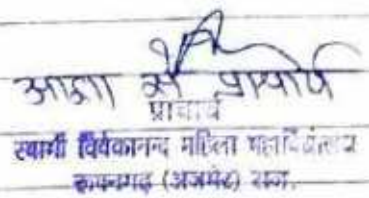 आज्ञा से प्राचार्य
प्राचार्य
स्वामी विवेकानन्द महिला महाविद्यालय
रूपनगढ़ (अजमेर) राज.